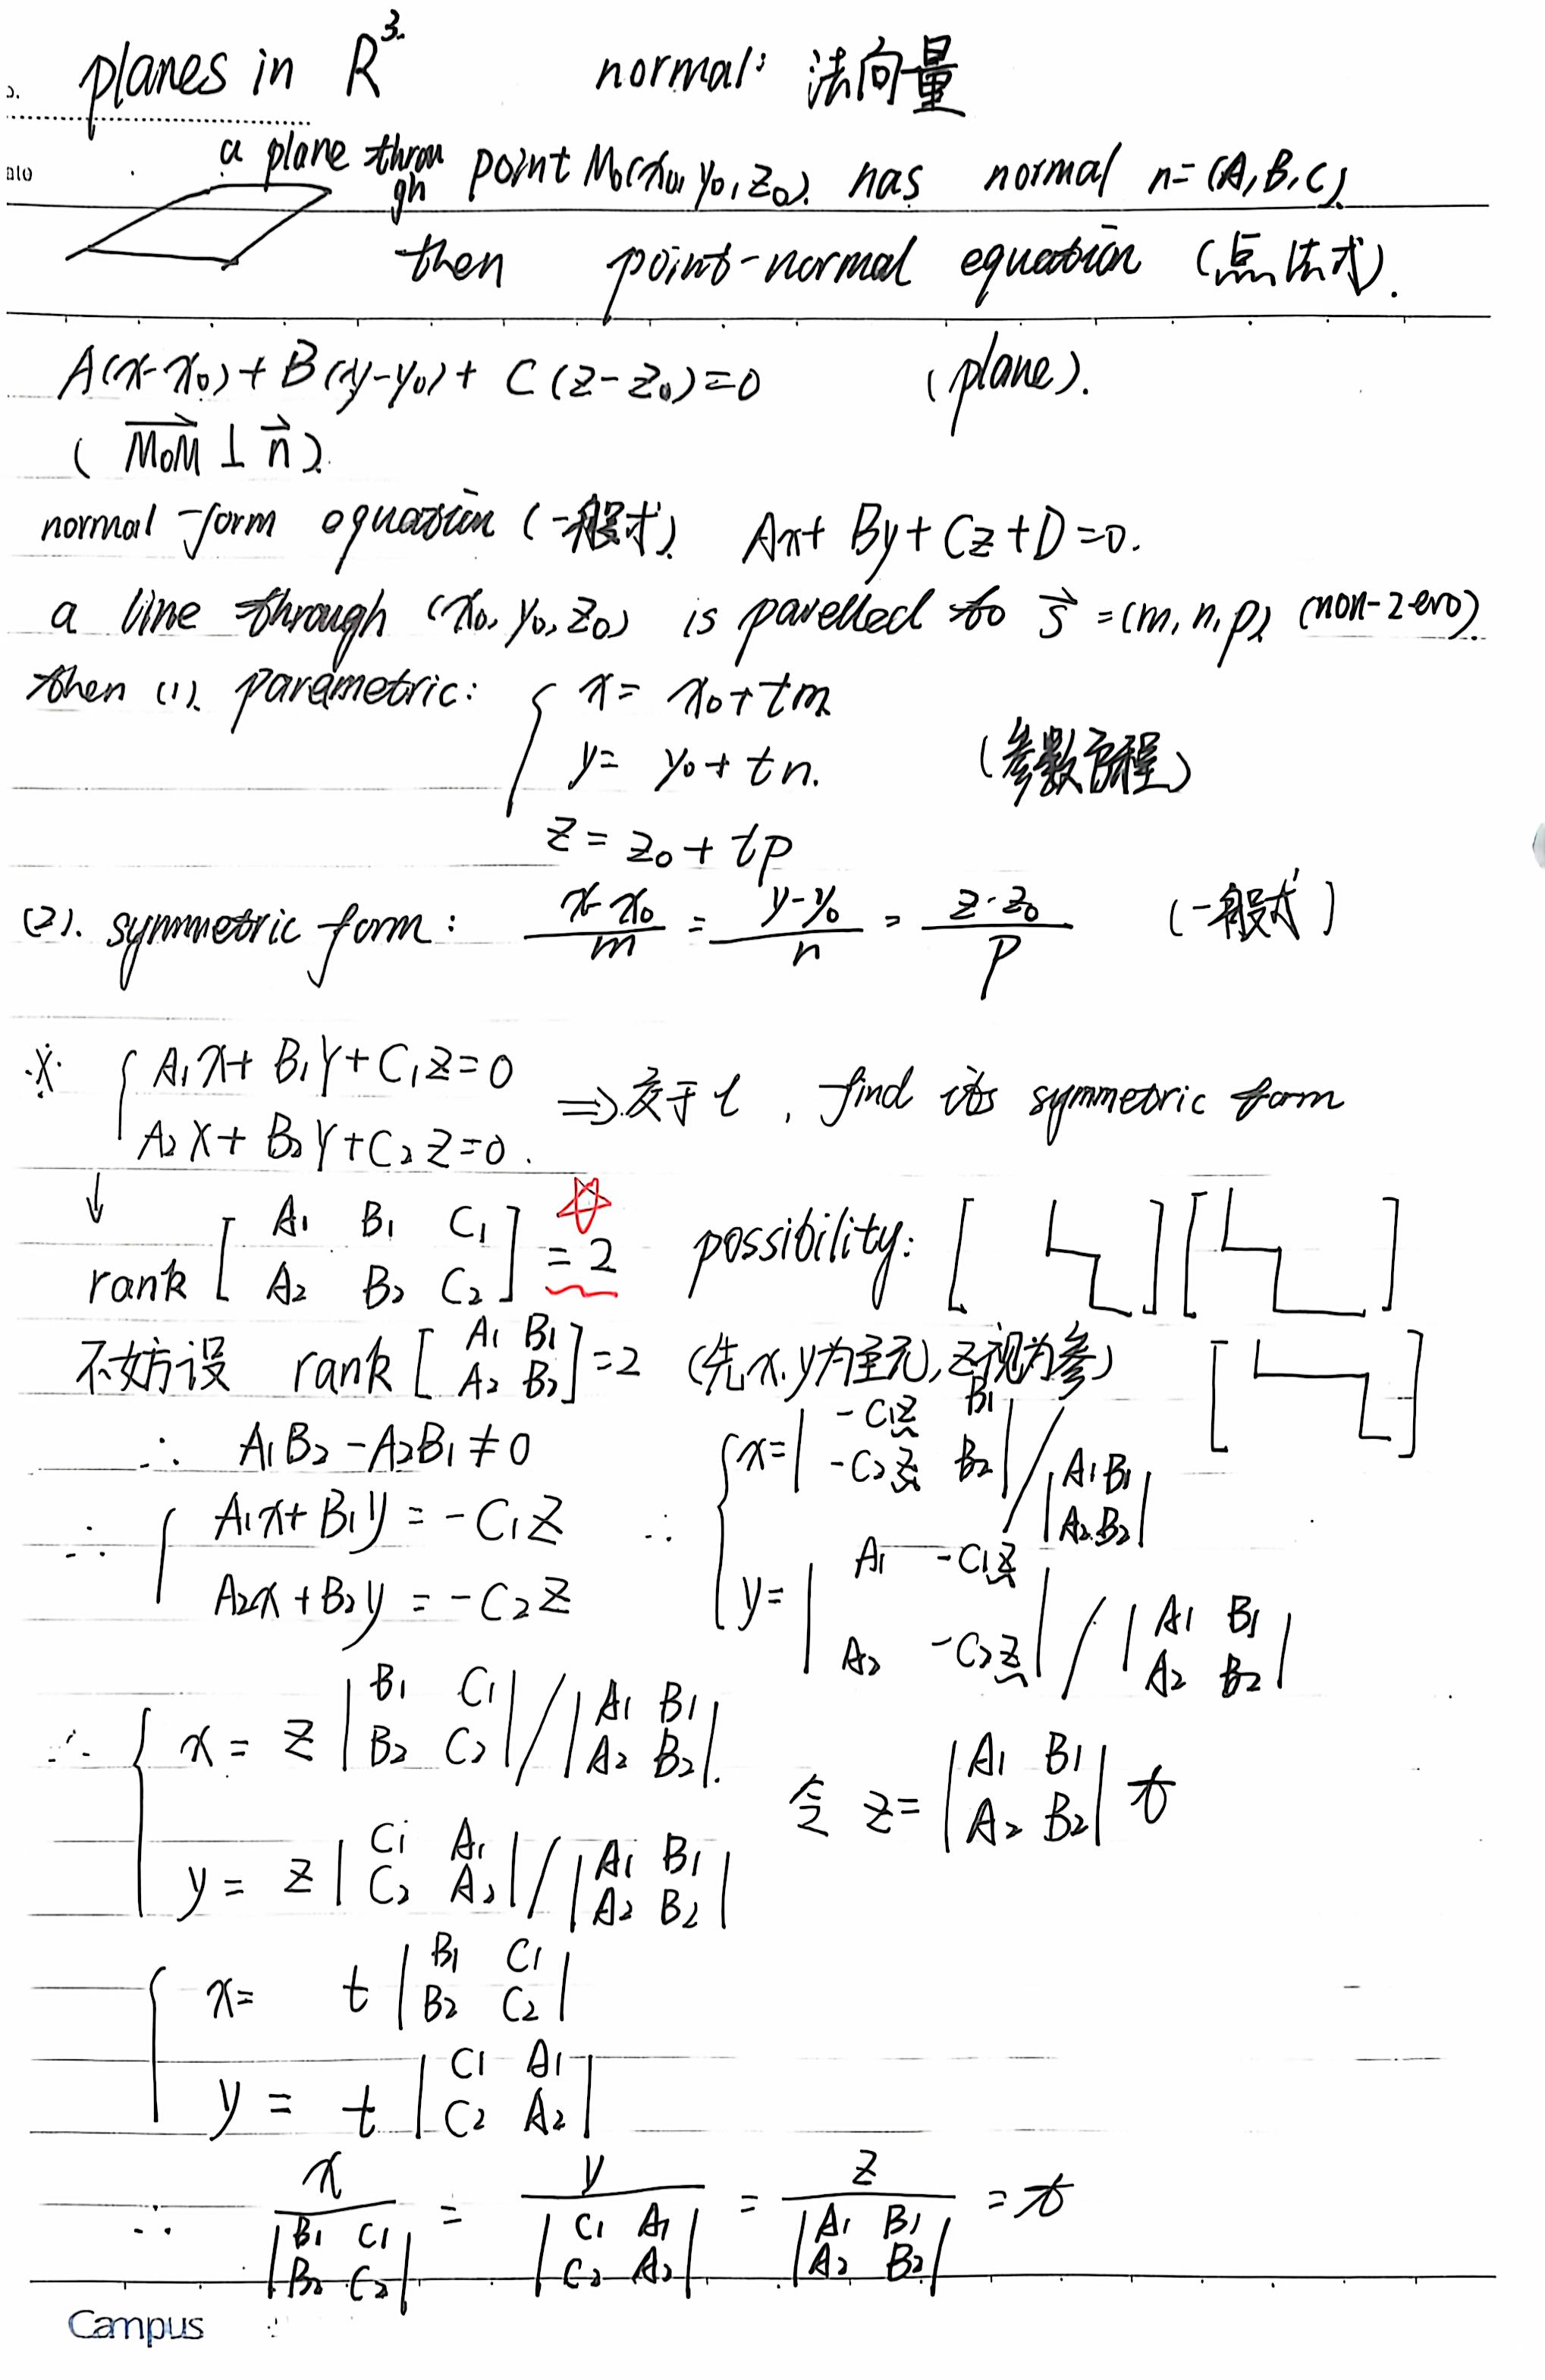 planes in R³ normal: 法向量
a plane through point M₀(x₀, y₀, z₀) has normal n=(A, B, C)
then point-normal equation (点法式).
A(x-x₀)+B(y-y₀)+C(z-z₀)=0 (plane).
( M₀M⃗ ⊥ n⃗ )
normal-form equation (一般式) Ax+By+Cz+D=0.
a line through (x₀, y₀, z₀) is parelled to s⃗ =(m, n, p) (non-zero)
then (1). parametric: { x= x₀+tm
y= y₀+tn. (参数方程)
z= z₀+tp
(2). symmetric form: (x-x₀)/m = (y-y₀)/n = (z-z₀)/p (一般式)
※ { A₁x+B₁y+C₁z=0
A₂x+B₂y+C₂z=0. ⇒ 交于l, find its symmetric form
↓
rank [ A₁ B₁ C₁ ; A₂ B₂ C₂ ] =2 ☆ possibility:
不妨设 rank [ A₁ B₁ ; A₂ B₂ ]=2 (先x,y为主元),z视为参)
∴ A₁B₂-A₂B₁≠0
∴ { A₁x+B₁y = -C₁z
A₂x+B₂y = -C₂z
∴ { x=| -C₁z B₁ ; -C₂z B₂ | / | A₁ B₁ ; A₂ B₂ |
y=| A₁ -C₁z ; A₂ -C₂z | / | A₁ B₁ ; A₂ B₂ |
∴ { x = z | B₁ C₁ ; B₂ C₂ | / | A₁ B₁ ; A₂ B₂ |.
y = z | C₁ A₁ ; C₂ A₂ | / | A₁ B₁ ; A₂ B₂ |
令 z= | A₁ B₁ ; A₂ B₂ | t
{ x= t | B₁ C₁ ; B₂ C₂ |
y = t | C₁ A₁ ; C₂ A₂ |
∴ x / | B₁ C₁ ; B₂ C₂ | = y / | C₁ A₁ ; C₂ A₂ | = z / | A₁ B₁ ; A₂ B₂ | = t
Campus